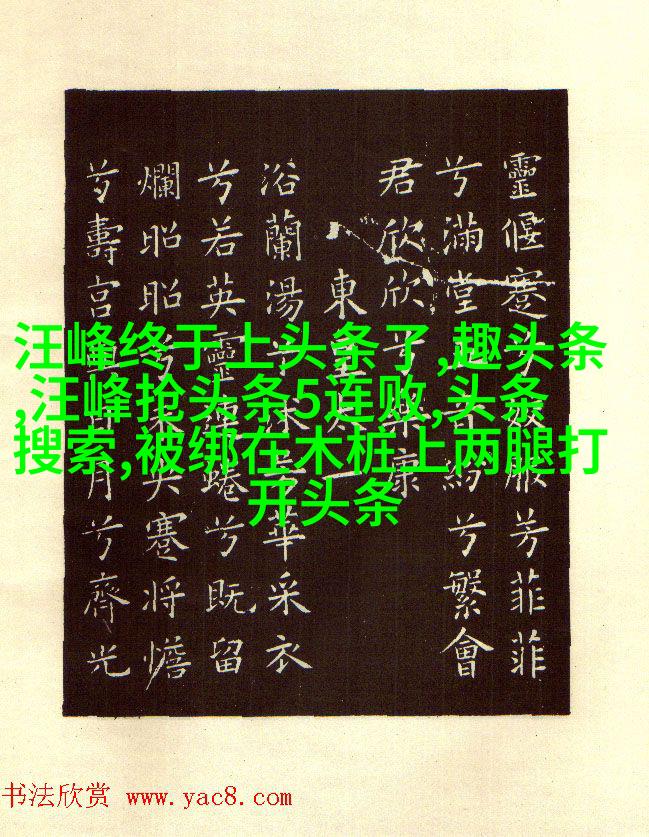 靈偃蹇兮姣服芳菲菲
兮滿堂五音紛兮繁會
君欣欣兮樂康
東皇太一
浴蘭湯兮沐芳華采衣
兮若英靈連蜷兮既留
爛昭昭兮未央蹇將憺
兮壽宮與日月兮齊光
汪峰终于上头条了,趣头条
,汪峰抢头条5连败,头条
搜索,被绑在木桩上两腿打
开头条
书法欣赏 www.yac8.com